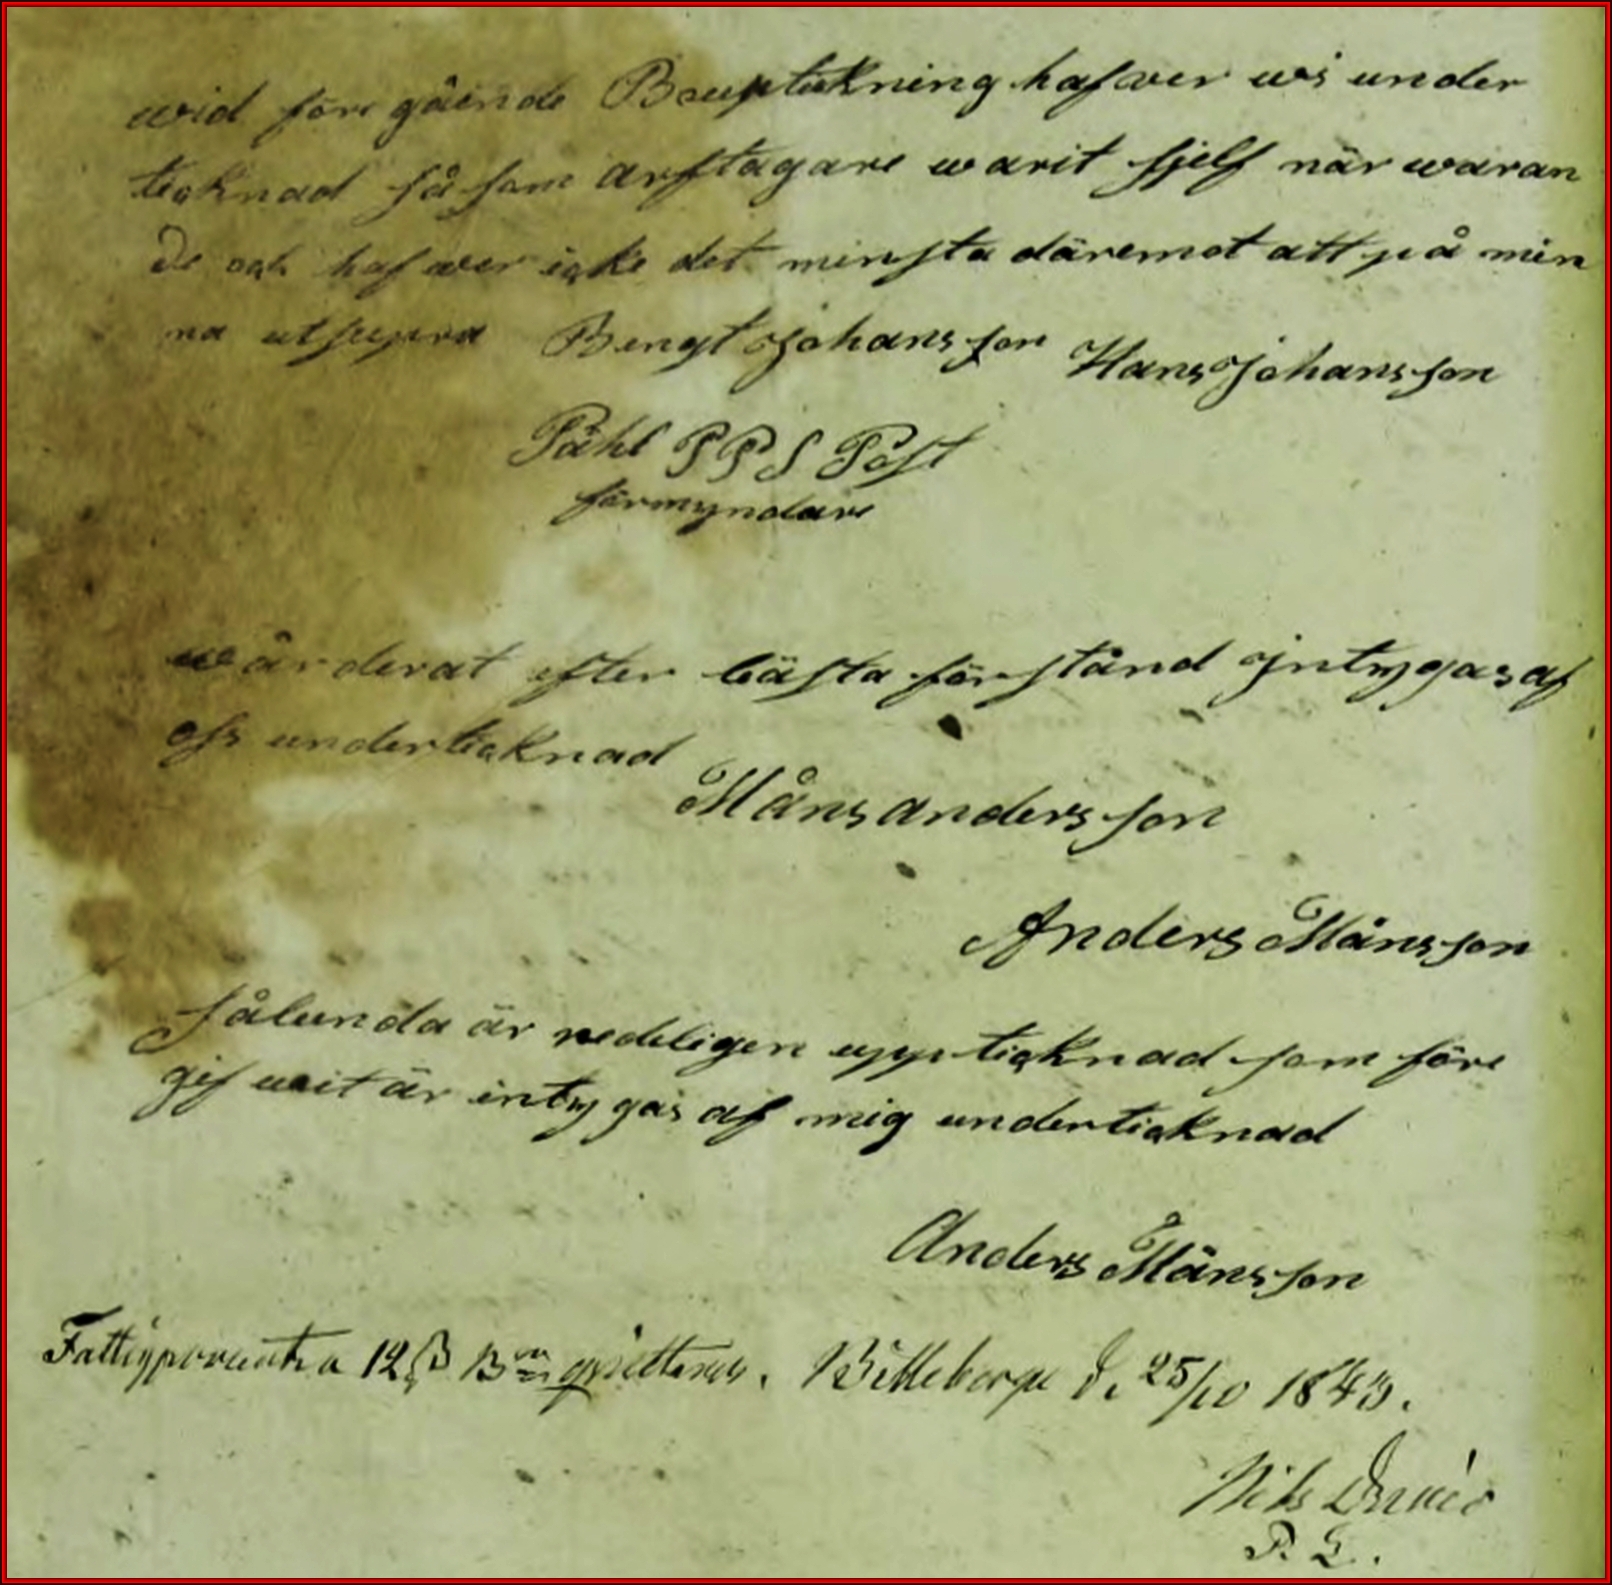 wid före gåënde Bouptekning hafwer wi under
teqknad så som arftagare warit sjelf när waran
De och hafwer iqke det minsta däremot att på min
na utsupra Bengt Johansson Hans Johansson
Påhl P P S Post
förmyndare
wärderat efter bästa förstånd Jntygas af
oss underteqknad
Måns andersson
Anders Månsson
sålunda är redeligen upp teqknad som före
gif uit är intygas af mig underteqknad
Anders Månsson
Fattigprocenten 12 ß Bco qvitteras. Billeberga d. 25/10 1843.
Nils
P. L.